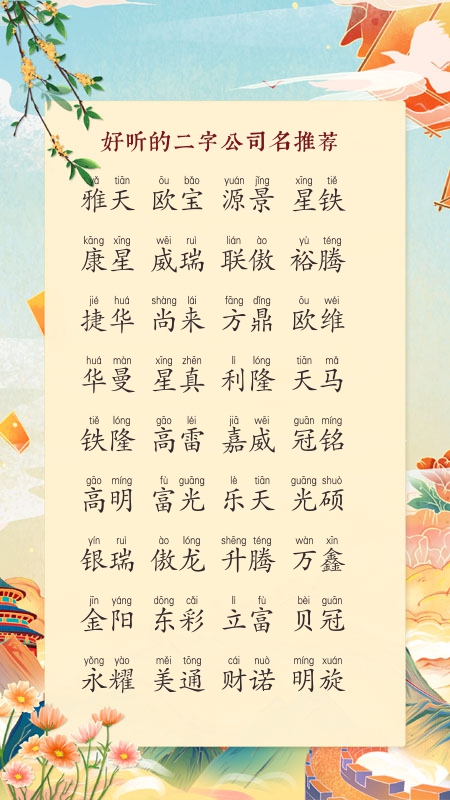 好听的二字公司名推荐
yǎ tiān ōu bǎo yuán jǐng xīng tiě
雅天 欧宝 源景 星铁
kāng xīng wēi ruì lián ào yù téng
康星 威瑞 联傲 裕腾
jié huá shàng lái fāng dǐng ōu wéi
捷华 尚来 方鼎 欧维
huá màn xīng zhēn lì lóng tiān mǎ
华曼 星真 利隆 天马
tiě lóng gāo léi jiā wēi guān míng
铁隆 高雷 嘉威 冠铭
gāo míng fù guāng lè tiān guāng shuò
高明 富光 乐天 光硕
yín ruì ào lóng shēng téng wàn xīn
银瑞 傲龙 升腾 万鑫
jīn yáng dōng cǎi lì fù bèi guān
金阳 东彩 立富 贝冠
yǒng yào měi tōng cái nuò míng xuán
永耀 美通 财诺 明旋